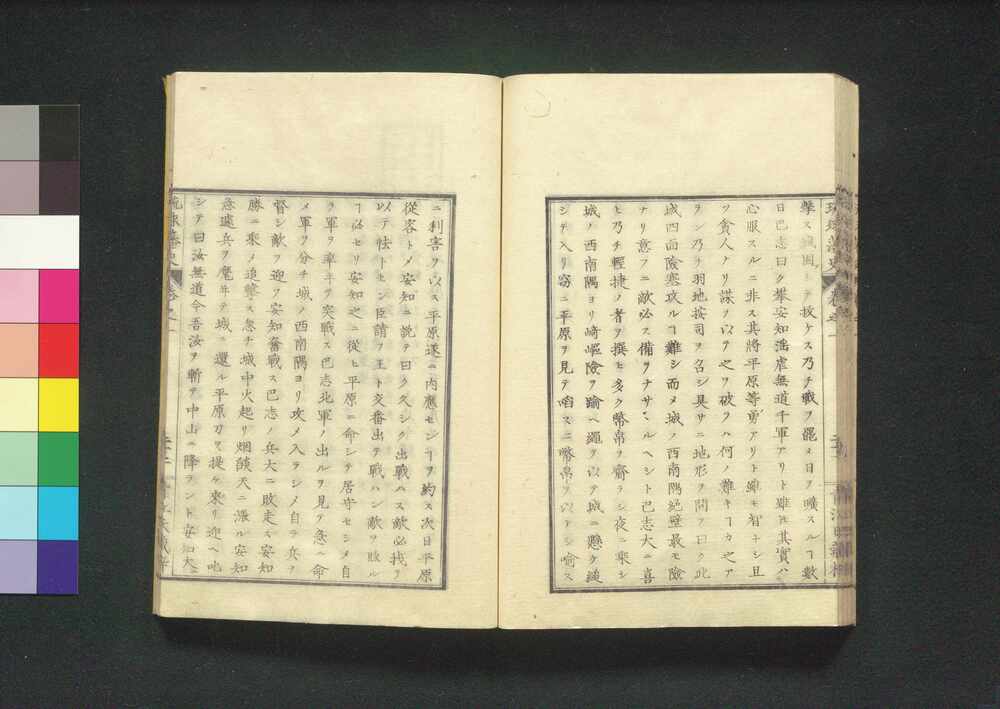 擊ス城固クシテ拔ケス乃チ戰ヲ罷メ日ヲ曠スルヿ數
日巴志曰ク攀安知淫虐無道千軍アリト雖𪜈其實ハ
心服スルニ非ス其將平原等勇アリト雖モ智ナシ且
ツ貪人ナリ謀ヲ以テ之ヲ破ラハ何ノ難キヿカ之ア
ラン乃チ羽地按司ヲ召シ具サニ地形ヲ問フ曰ク此
城四面險塞攻ルヿ難シ而メ城ノ西南隅絕壁最モ險
ナリ意フニ敵必ス備ヲナサヽルヘシト巴志大ニ喜
ヒ乃チ輕捷ノ者ヲ撰ヒ多ク幣帛ヲ齎ラシ夜ニ乘シ
城ノ西南隅ヨリ崎嶇險ヲ踰ヘ繩ヲ以テ城ニ懸ケ縋
シテ入リ窃ニ平原ヲ見テ啗スニ幣帛ヲ以テシ喻ス
ニ利害ヲ以ス平原遂ニ內應センヿヲ約ス次日平原
從容トメ安知ニ說テ曰ク久シク出戰ハス敵必我ヲ
以テ怯トセン臣請フ王ト交番出テ戰ハン敵ヲ敗ル
ヿ必セリ安知之ニ從ヒ平原ニ命シテ居守セシメ自
ラ軍ヲ率キテ突戰ス巴志北軍ノ出ルヲ見テ急ニ命
メ軍ヲ分チ城ノ西南隅ヨリ攻メ入ラシメ自ラ兵ヲ
督シ敵ヲ迎フ安知奮戰ス巴志ノ兵大ニ敗走ス安知
勝ニ乘メ追擊ス忽チ城中火起リ烟燄天ニ漲ル安知
急遽兵ヲ麾キテ城ニ還ル平原刀ヲ提ケ來リ迎ヘ叱
シテ曰汝無道今吾汝ヲ斬テ中山ニ降ラント安知大ニ
琉球藩史 卷之一